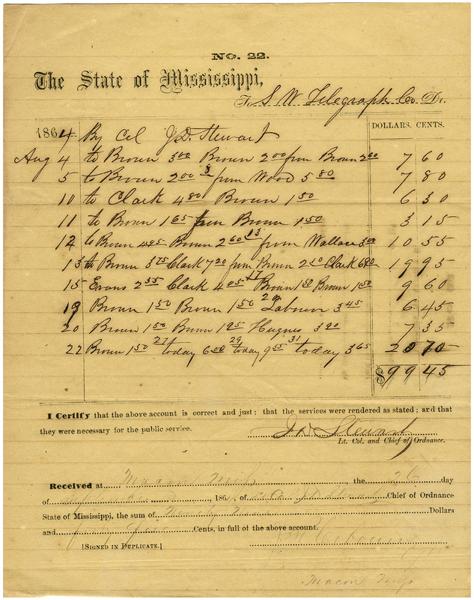 No. 22.
The State of Mississippi,
To S. W. Telegraph Co. Dr.
DOLLARS. CENTS.
1864 By Col J. D. Stewart
Aug 4 to Brown 3 00 Brown 2 00 from Brown 2 60 7 60
5 to Brown 2 00 from Wood 5 80 7 80
10 to Clark 4 80 Brown 1 50 6 30
11 to Brown 1 65 from Brown 1 50 3 15
12 to Brown Brown 2 60 13 from Wallace 3 00 10 55
13 to Brown 3 75 Clark 7 20 from Brown 2 10 Clark 6 80 19 95
15 Evans 2 55 Clark 4 05 17 Brown 1 50 Brown 1 50 9 60
19 Brown 1 50 Brown 1 50 20 Labourn 3 45 6 45
20 Brown 1 50 Brown Hughes 7 35
22 Brown 1 50 27 today 6 00 29 today 9 55 31 today 3 65 20 70
$99 45
I Certify that the above account is correct and just; that the services were rendered as stated; and that
they were necessary for the public service.
J. D. Stewart
Lt. Col. and Chief of Ordnance.
Received at Macon Miss the day
of 186 of Chief of Ordnance
State of Mississippi, the sum of Ninety Nine Dollars
and Forty five Cents, in full of the above account.
[SIGNED IN DUPLICATE.]
Macon Miss